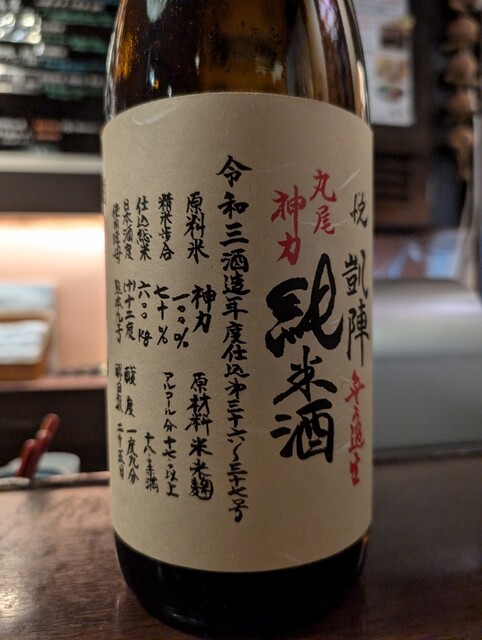 悦 凱陣
丸尾
神力
純米酒
令和三酒造年度仕込第三十六〜三十七号
原料米 神力 一〇〇%
原材料 米 米麹
精米歩合 七十%
アルコール分 十七・以上
十八・未満
仕込総米 六〇〇kg
日本酒度 (+)十二度
酸度 一度九分
使用酵母 熊本九号
醪日数 二十五日